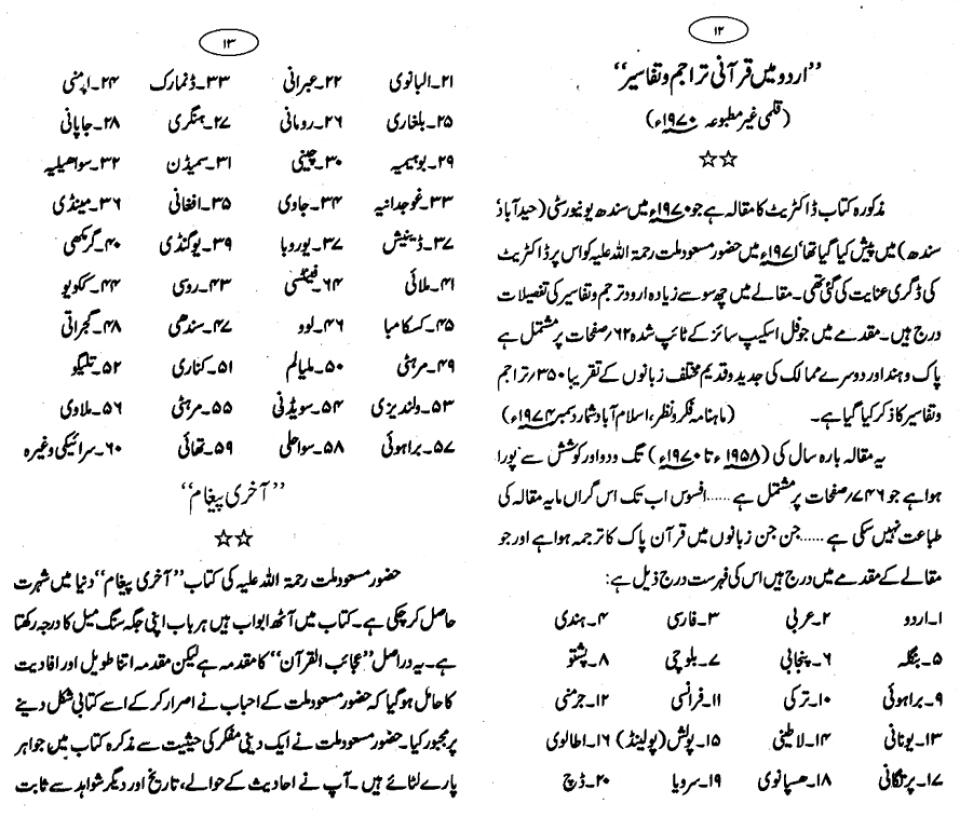 ۱۲
’’اردو میں قرآنی تراجم و تفاسیر‘‘
(قلمی غیر مطبوعہ ۱۹۷۰ء)
☆☆
مذکورہ کتاب ڈاکٹریٹ کا مقالہ ہے جو ۱۹۷۰ء میں سندھ یونیورسٹی (حیدآباد
سندھ) میں پیش کیا گیا تھا‘ ۱۹۷۱ء میں حضور مسعود ملت رحمۃ اللہ علیہ کو اس پر ڈاکٹریٹ
کی ڈگری عنایت کی گئی تھی۔ مقالے میں چھ سو سے زیادہ اردو ترجم و تفاسیر کی تفصیلات
درج ہیں۔ مقدمے میں جو فل اسکیپ سائز کے ٹائپ شدہ ۶۲؍صفحات پر مشتمل ہے
پاک و ہند اور دوسرے ممالک کی جدید و قدیم مختلف زبانوں کے تقریبا ۳۵۰؍تراجم
و تفاسیر کا ذکر کیا گیا ہے۔ (ماہنامہ فکر و نظر، اسلام آباد شمار دسمبر ۱۹۷۴ء)
یہ مقالہ بارہ سال کی (۱۹۵۸ء تا ۱۹۷۰ء) تگ و دو اور کوشش سے پورا
ہوا ہے جو ۷۴۶؍صفحات پر مشتمل ہے ......افسوس اب تک اس گراں مایہ مقالہ کی
طباعت نہیں سکی ہے ......جن جن زبانوں میں قرآن پاک کا ترجمہ ہوا ہے اور جو
مقالے کے مقدمے میں درج ہیں اس کی فہرست درج ذیل ہے:
۱۔اردو ۲۔عربی ۳۔فارسی ۴۔ہندی
۵۔بنگلہ ۶۔پنجابی ۷۔بلوچی ۸۔پشتو
۹۔براہوئی ۱۰۔ترکی ۱۱۔فرانسی ۱۲۔جرمنی
۱۳۔یونانی ۱۴۔لاطینی ۱۵۔پولش (پولینڈ) ۱۶۔اطالوی
۱۷۔پرتگانی ۱۸۔ھسپانوی ۱۹۔سرویا ۲۰۔ڈچ
۱۳
۲۱۔البانوی ۲۲۔عبرانی ۳۳۔ڈنمارک ۲۴۔ارمنی
۲۵۔بلغاری ۲۶۔رومانی ۲۷۔ہنگری ۲۸۔جاپانی
۲۹۔بوہیمیہ ۳۰۔چینی ۳۱۔سمیڈن ۳۲۔سواھیلیہ
۳۳۔غوجدانیہ ۳۴۔جاوی ۳۵۔افغانی ۳۶۔مینڈی
۳۷۔ڈینیش ۳۷۔یوروبا ۳۹۔یوگنڈی ۴۰۔گرمکھی
۴۱۔ملائی ۶۴۔فینٹسی ۴۳۔روسی ۴۴۔ککویو
۴۵۔کسکامبا ۴۶۔لوو ۴۷۔سندھی ۴۸۔گجراتی
۴۹۔مرہٹی ۵۰۔ملیالم ۵۱۔کناری ۵۲۔تلیگو
۵۳۔ولندیزی ۵۴۔سویڈنی ۵۵۔مرہٹی ۵۶۔ملاوی
۵۷۔براہوئی ۵۸۔سواحلی ۵۹۔تھائی ۶۰۔سرائیکی وغیرہ
’’آخری پیغام‘‘
☆☆
حضور مسعود ملت رحمۃ اللہ علیہ کی کتاب ’’آخری پیغام‘‘ دنیا میں شہرت
حاصل کر چکی ہے۔ کتاب میں آٹھ ابواب ہیں ہر باب اپنی جگہ سنگ میل کا درجہ رکھتا
ہے۔ یہ دراصل ’’عجائب القرآن‘‘ کا مقدمہ ہے لیکن مقدمہ اتنا طویل اور افادیت
کا حامل ہو گیا کہ حضور مسعود ملت کے احباب نے اصرار کر کے اسے کتابی شکل دینے
پر مجبور کیا۔ حضور مسعود ملت نے ایک دینی مفکر کی حیثیت سے مذکرہ کتاب میں جواہر
پارے لٹائے ہیں۔ آپ نے احادیث کے حوالے، تاریخ اور دیگر شواہد سے ثابت